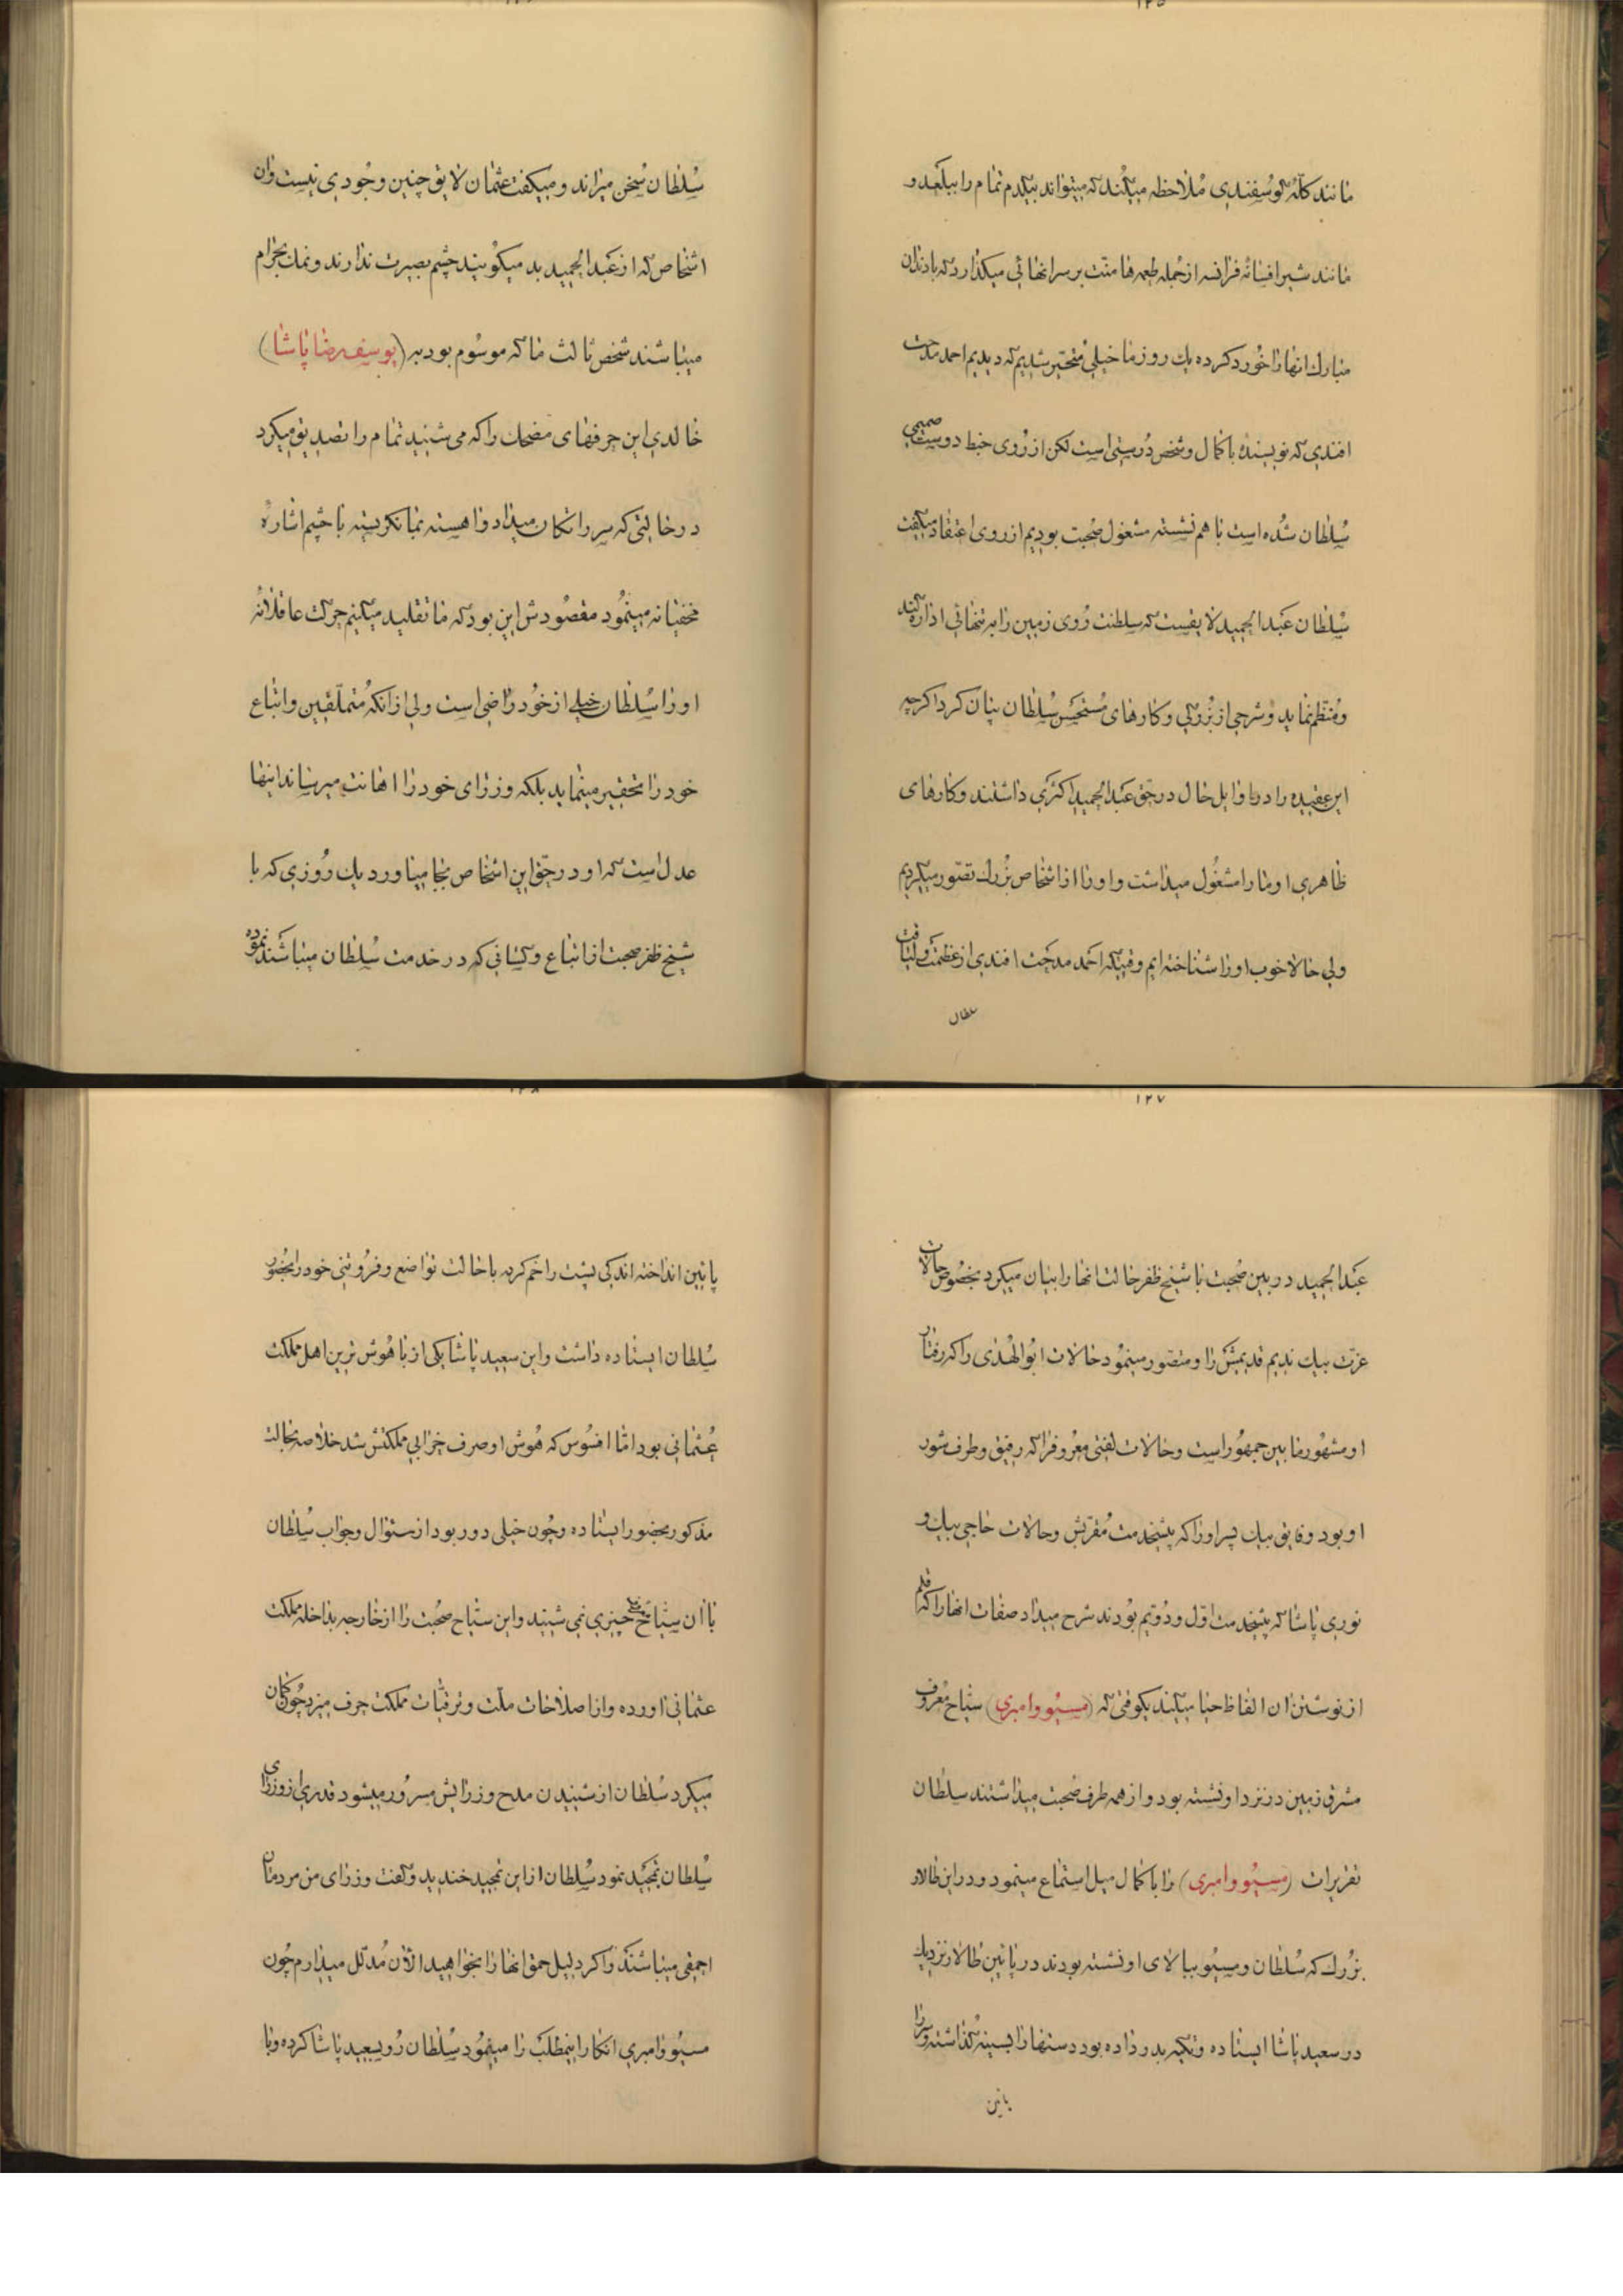 ۱۲۵
مانند کلّه گوسفندی ملاحظه میکند که میتواند بیکدم تمام را ببلعد و
مانند شیر افسانه فرانسه از جمله طعمه ها منّت بر سر انهائی میکذارد که با دندان
مبارك انها را خورد کرده یك روز ما خیلی متحیّر شدیم که دیدیم احمد مدحت
افندی که نویسنده با کمال و شخص درستی است لکن از روی خبط دوست صمیمی
سُلطان شده است با هم نشسته مشغول صُحبت بودیم از روی اعتقاد میکفت
سُلطان عَبدالحمید لایقست که سلطنت رُوی زمین را به تنهائی اداره کند
و مُنتظم نماید و شرحی از بُزرگی و کارهای مُستحسن سُلطان بیان کرد اکرچه
این عقیده را در اوایل حال در حق عَبدالحمید اکثری داشتند و کارهای
ظاهری او ما را مشغُول میداشت و او را از اشخاص بُزرك تصّور میکردیم
ولی حالا خوب او را شناخته ایم وقتیکه احمد مدحت افندی از عظمت و لیاقت
سلطان
سُلطان سُخن میراند و میکفت عثمان لایق چنین وجُودی نیست و ان
اشخاص که از عَبدالحمید بد میکویند چشم بصیرت ندارند و نمك بحرام
میباشند شخص ثالث ما که موسُوم بود به (یوسف رضا پاشا)
خالدی این حرفهای مضحك را که می شنید تمام را تصدیق میکرد
در حالتی که سر را تکان میداد و اهسته بما نکریسته با چشم اشارهٔ
مخفیانه مینمُود مقصُودش این بود که ما تقلید میکنیم حرکت عاقلانه
او را سُلطان خیلی از خُود راضی است ولی از انکه مُتملّقین و اتباع
خود را تحقیر مینماید بلکه وزرای خود را اهانت میرساند اینها
عدل است که او در حقّ این اشخاص بجا میاورد یك رُوزی که با
شیخ ظفر صحبت از اتباع و کسانی که در خدمت سُلطان میباشند نموده
۱۲۷
عَبدالحمید در بین صُحبت با شیخ ظفر حالت انها را بیان میکرد بخصُوص حالات
عزّت بیك ندیم قدیمش را و متصّور مینمُود حالات ابُوالهُدی را که رفتار
او مشهُور ما بین جمهُور است و حالات لُطفی معرُوف را که رفیق و طرف شور
او بود و فایق بیك پسر او را که پیشخدمت مُقرّبش و حالات حاجی بیك و
نوری پاشا که پیشخدمت اوّل و دُوّیم بُودند شرح میداد صفات انها را که قلم
از نوشتن ان الفاظ حیا میکند یکوقتی که (مسیُو وامبری) سیّاح معرُوف
مشرق زمین در نزد او نشسته بود و از همه طرف صُحبت میداشتند سلطان
تقریرات (مسیُو وامبری) را با کمال میل استماع مینمود و در این طالار
بزُرك که سُلطان و مسیُو ببالای او نشسته بودند در پائین طالار نزدیك
در سعید پاشا ایستاده و تکیه بدر داده بود دستها را بسینه کذاشته و سر را
پائین
پائین انداخته اندکی پشت را خم کرده با حالت تواضع و فرُوتنی خود را بحضُور
سُلطان ایستاده داشت و این سعید پاشا یکی از با هُوش ترین اهل مملکت
عُثمانی بود امّا افسُوس که هُوش او صرف خرابی مملکتش شد خلاصه بحالت
مذکور بحضور ایستاده و چُون خیلی دور بود از سئوال و جواب سُلطان
با ان سیّاح چیزی نمی شنید و این سیّاح صُحبت را از خارجه بداخله مملکت
عثمانی اورده و از اصلاحات ملّت و ترقیّات مملکت حرف میزد چُون کمان
میکرد سُلطان از شنیدن مدح وزرایش مسرُور میشود قدری از وزرای
سُلطان تمجید نمود سُلطان از این تمجید خندید و کفت وزرای من مردمان
احمقی میباشند و اکر دلیل حمق انها را بخواهید الان مُدلّل میدارم چُون
مسیُو وامبری انکار اینمطلب را مینمُود سُلطان رُو بسعید پاشا کرده و با